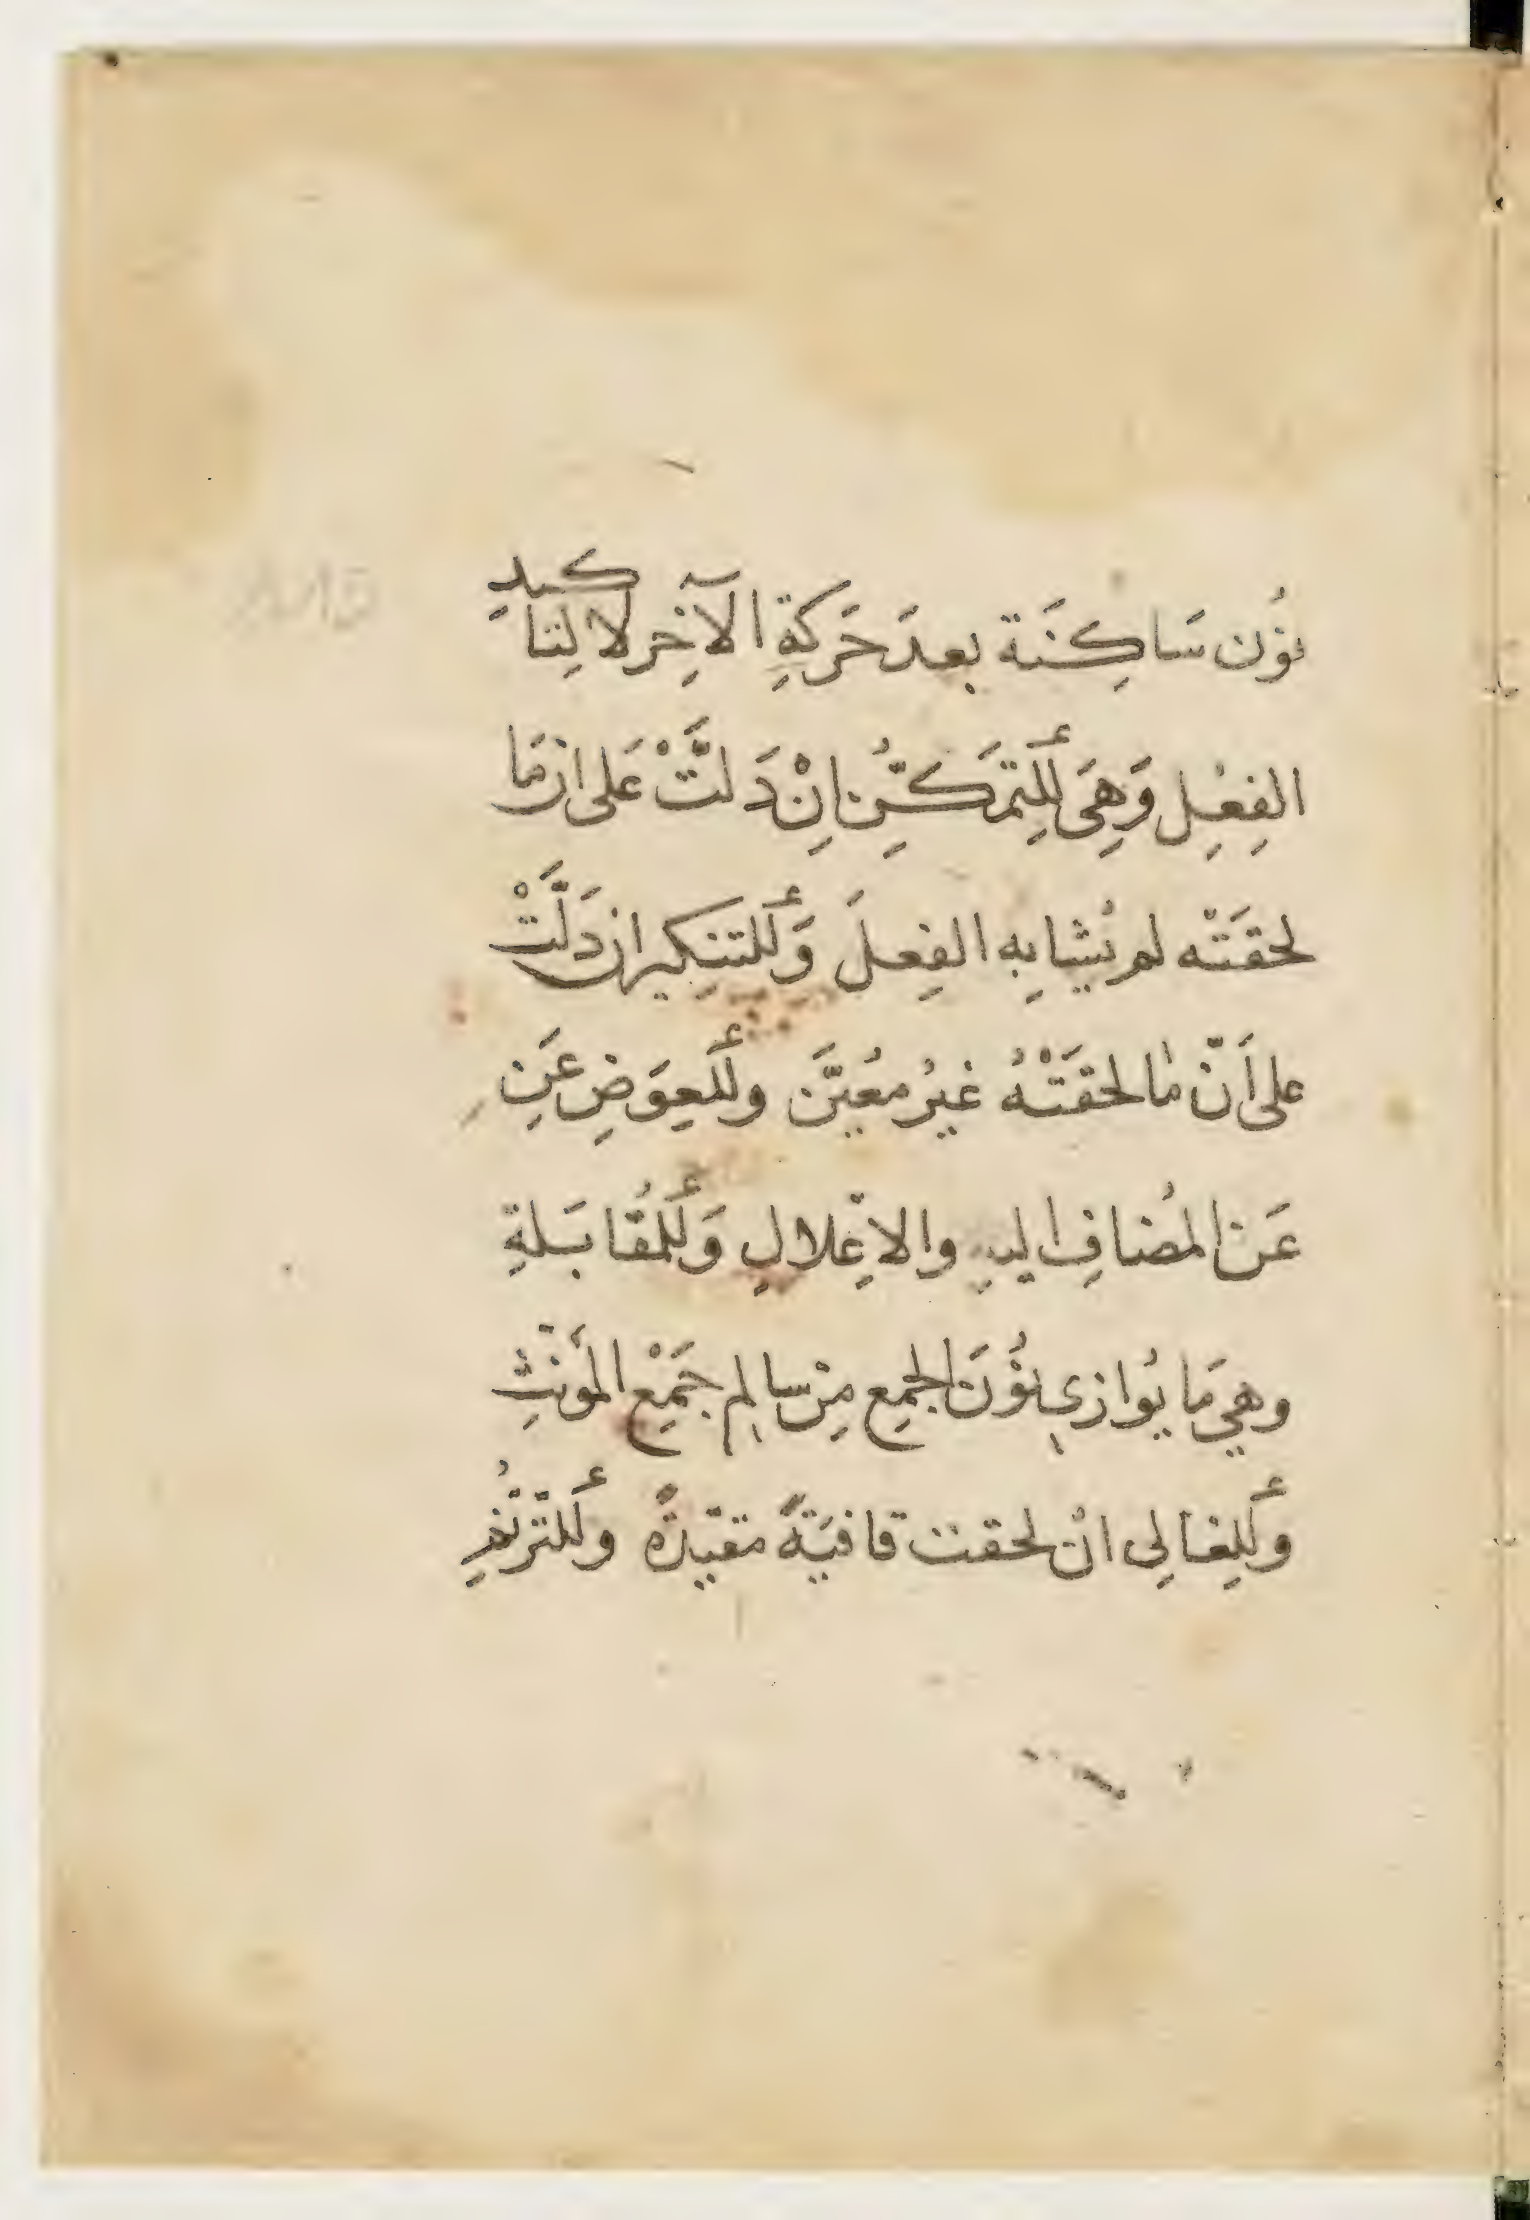 نُوْن سَاكِنَة بعدَ حَركَةِ الآخِر لا لِتاكيدِ
الفِعْلِ وَهِيَ لِلتمَكّنِ اِنْ دَلَّتْ عَلى ان مَا
لحقَتْه لم يُشابِه الفِعلَ وَللتنكِير ان دَلَّتْ
على اَنّ مٰا لحقَتْهُ غيرُ معُيَّن وللعِوَضِ عَنِ
عَن المُضافِ اليهِ والاِعْلالِ وَلَلمُقَابَلةِ
وهِي مَا يُوازي نوُنَ الجمِع مِنْ سالِم جَمْعِ المؤنّثِ
وَلِلغالِي انْ لحقت قافيَةً مقيّدةً وللتّرنُّمِ